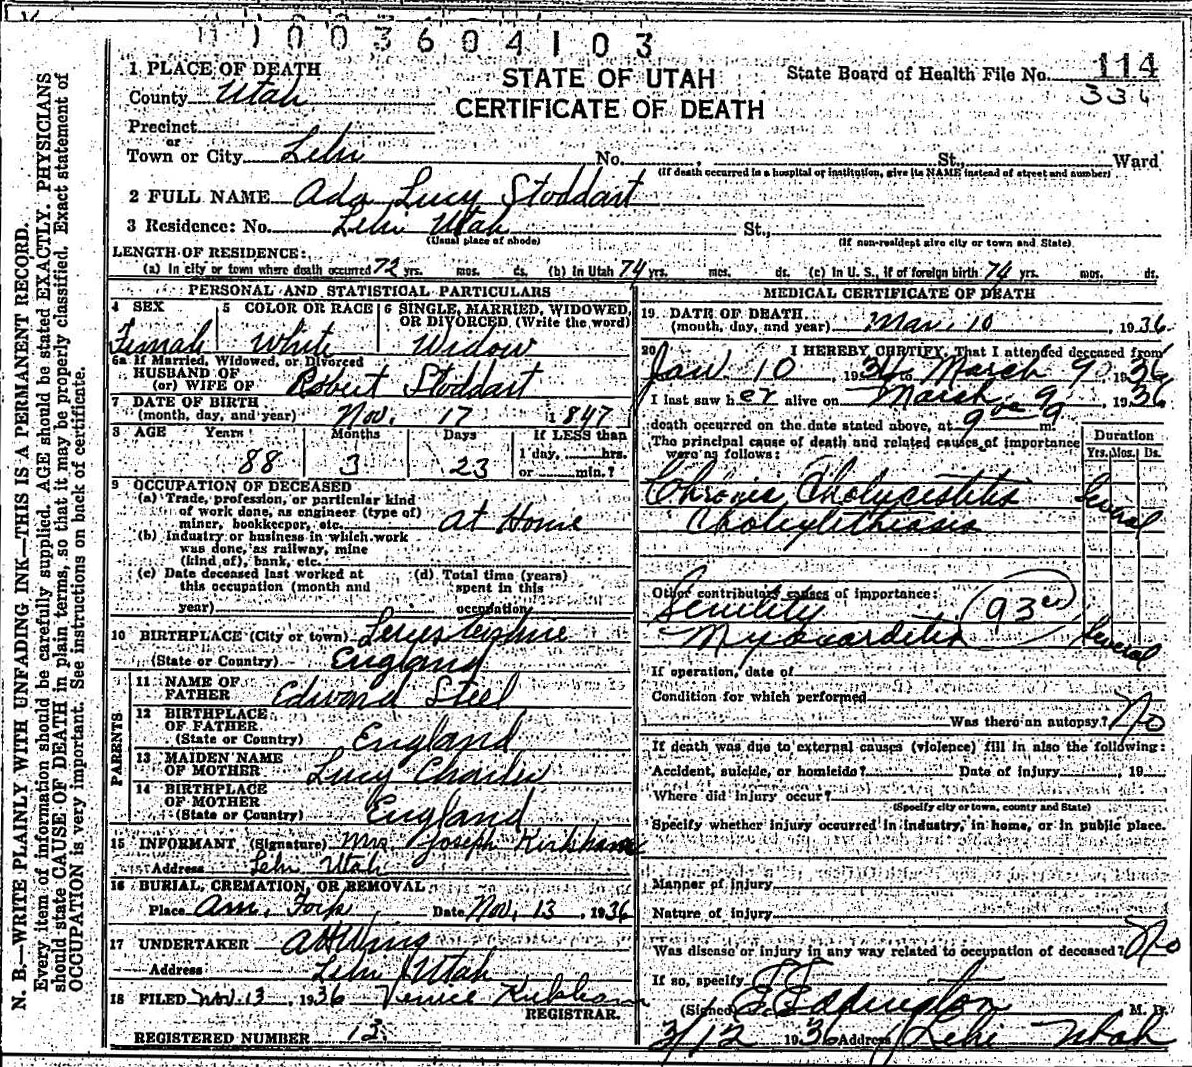 1 1 0 0 3 6 0 4 1 0 3
N. B.—WRITE PLAINLY WITH UNFADING INK—THIS IS A PERMANENT RECORD.
Every item of information should be carefully supplied. AGE should be stated EXACTLY. PHYSICIANS
should state CAUSE OF DEATH in plain terms, so that it may be properly classified. Exact statement of
OCCUPATION is very important. See instructions on back of certificate.
STATE OF UTAH
CERTIFICATE OF DEATH
State Board of Health File No. 114
336
1 PLACE OF DEATH
County Utah
Precinct
or
Town or City Lehi No. St., Ward
(If death occurred in a hospital or institution, give its NAME instead of street and number)
2 FULL NAME Ada Lucy Stoddart
3 Residence: No. Lehi Utah St.,
(Usual place of abode) (If non-resident give city or town and State)
LENGTH OF RESIDENCE:
(a) In city or town where death occurred 72 yrs. mos. ds. (b) In Utah 74 yrs. mos. ds. (c) In U. S., if of foreign birth 74 yrs. mos. ds.
PERSONAL AND STATISTICAL PARTICULARS
4 SEX Female
5 COLOR OR RACE White
6 SINGLE, MARRIED, WIDOWED, OR DIVORCED (Write the word) Widow
6a If Married, Widowed, or Divorced
HUSBAND OF
(or) WIFE OF Robert Stoddart
7 DATE OF BIRTH
(month, day, and year) Nov. 17 1847
8 AGE Years 88 Months 3 Days 23 If LESS than 1 day, hrs. or min.?
9 OCCUPATION OF DECEASED
(a) Trade, profession, or particular kind
of work done, as engineer (type of)
miner, bookkeeper, etc. At Home
(b) Industry or business in which work
was done, as railway, mine
(kind of), bank, etc.
(c) Date deceased last worked at
this occupation (month and
year)
(d) Total time (years)
spent in this
occupation
10 BIRTHPLACE (City or town)
(State or Country) England
PARENTS
11 NAME OF
FATHER Edward Steel
12 BIRTHPLACE
OF FATHER
(State or Country) England
13 MAIDEN NAME
OF MOTHER Lucy Charles
14 BIRTHPLACE
OF MOTHER
(State or Country) England
15 INFORMANT (Signature) Mrs Joseph Kirkham
Address Lehi Utah
16 BURIAL, CREMATION, OR REMOVAL
Place Am. Fork Date Nov. 13, 1936
17 UNDERTAKER A H Wing
Address Lehi Utah
18 FILED Nov. 13, 1936 Venice Kirkham
REGISTRAR.
REGISTERED NUMBER 13
MEDICAL CERTIFICATE OF DEATH
19 DATE OF DEATH
(month, day, and year) Mar. 10, 1936
20 I HEREBY CERTIFY, That I attended deceased from
Jan 10, 1936 March 9, 1936
I last saw her alive on March 9, 1936
death occurred on the date stated above, at 9 m.
The principal cause of death and related causes of importance
were as follows:
Duration
Yrs. Mos. Ds.
Chronic Cholycistitis Several
Choleylithiasis
Other contributory causes of importance:
Senility 93
Myocarditis Several
If operation, date of
Condition for which performed
Was there an autopsy? No
If death was due to external causes (violence) fill in also the following:
Accident, suicide, or homicide? Date of injury , 19
Where did injury occur?
(Specify city or town, county and State)
Specify whether injury occurred in industry, in home, or in public place.
Manner of injury
Nature of injury
Was disease or injury in any way related to occupation of deceased? No
If so, specify
(Signed) E Eddington M. D.
3/12 1936 Address Lehi Utah